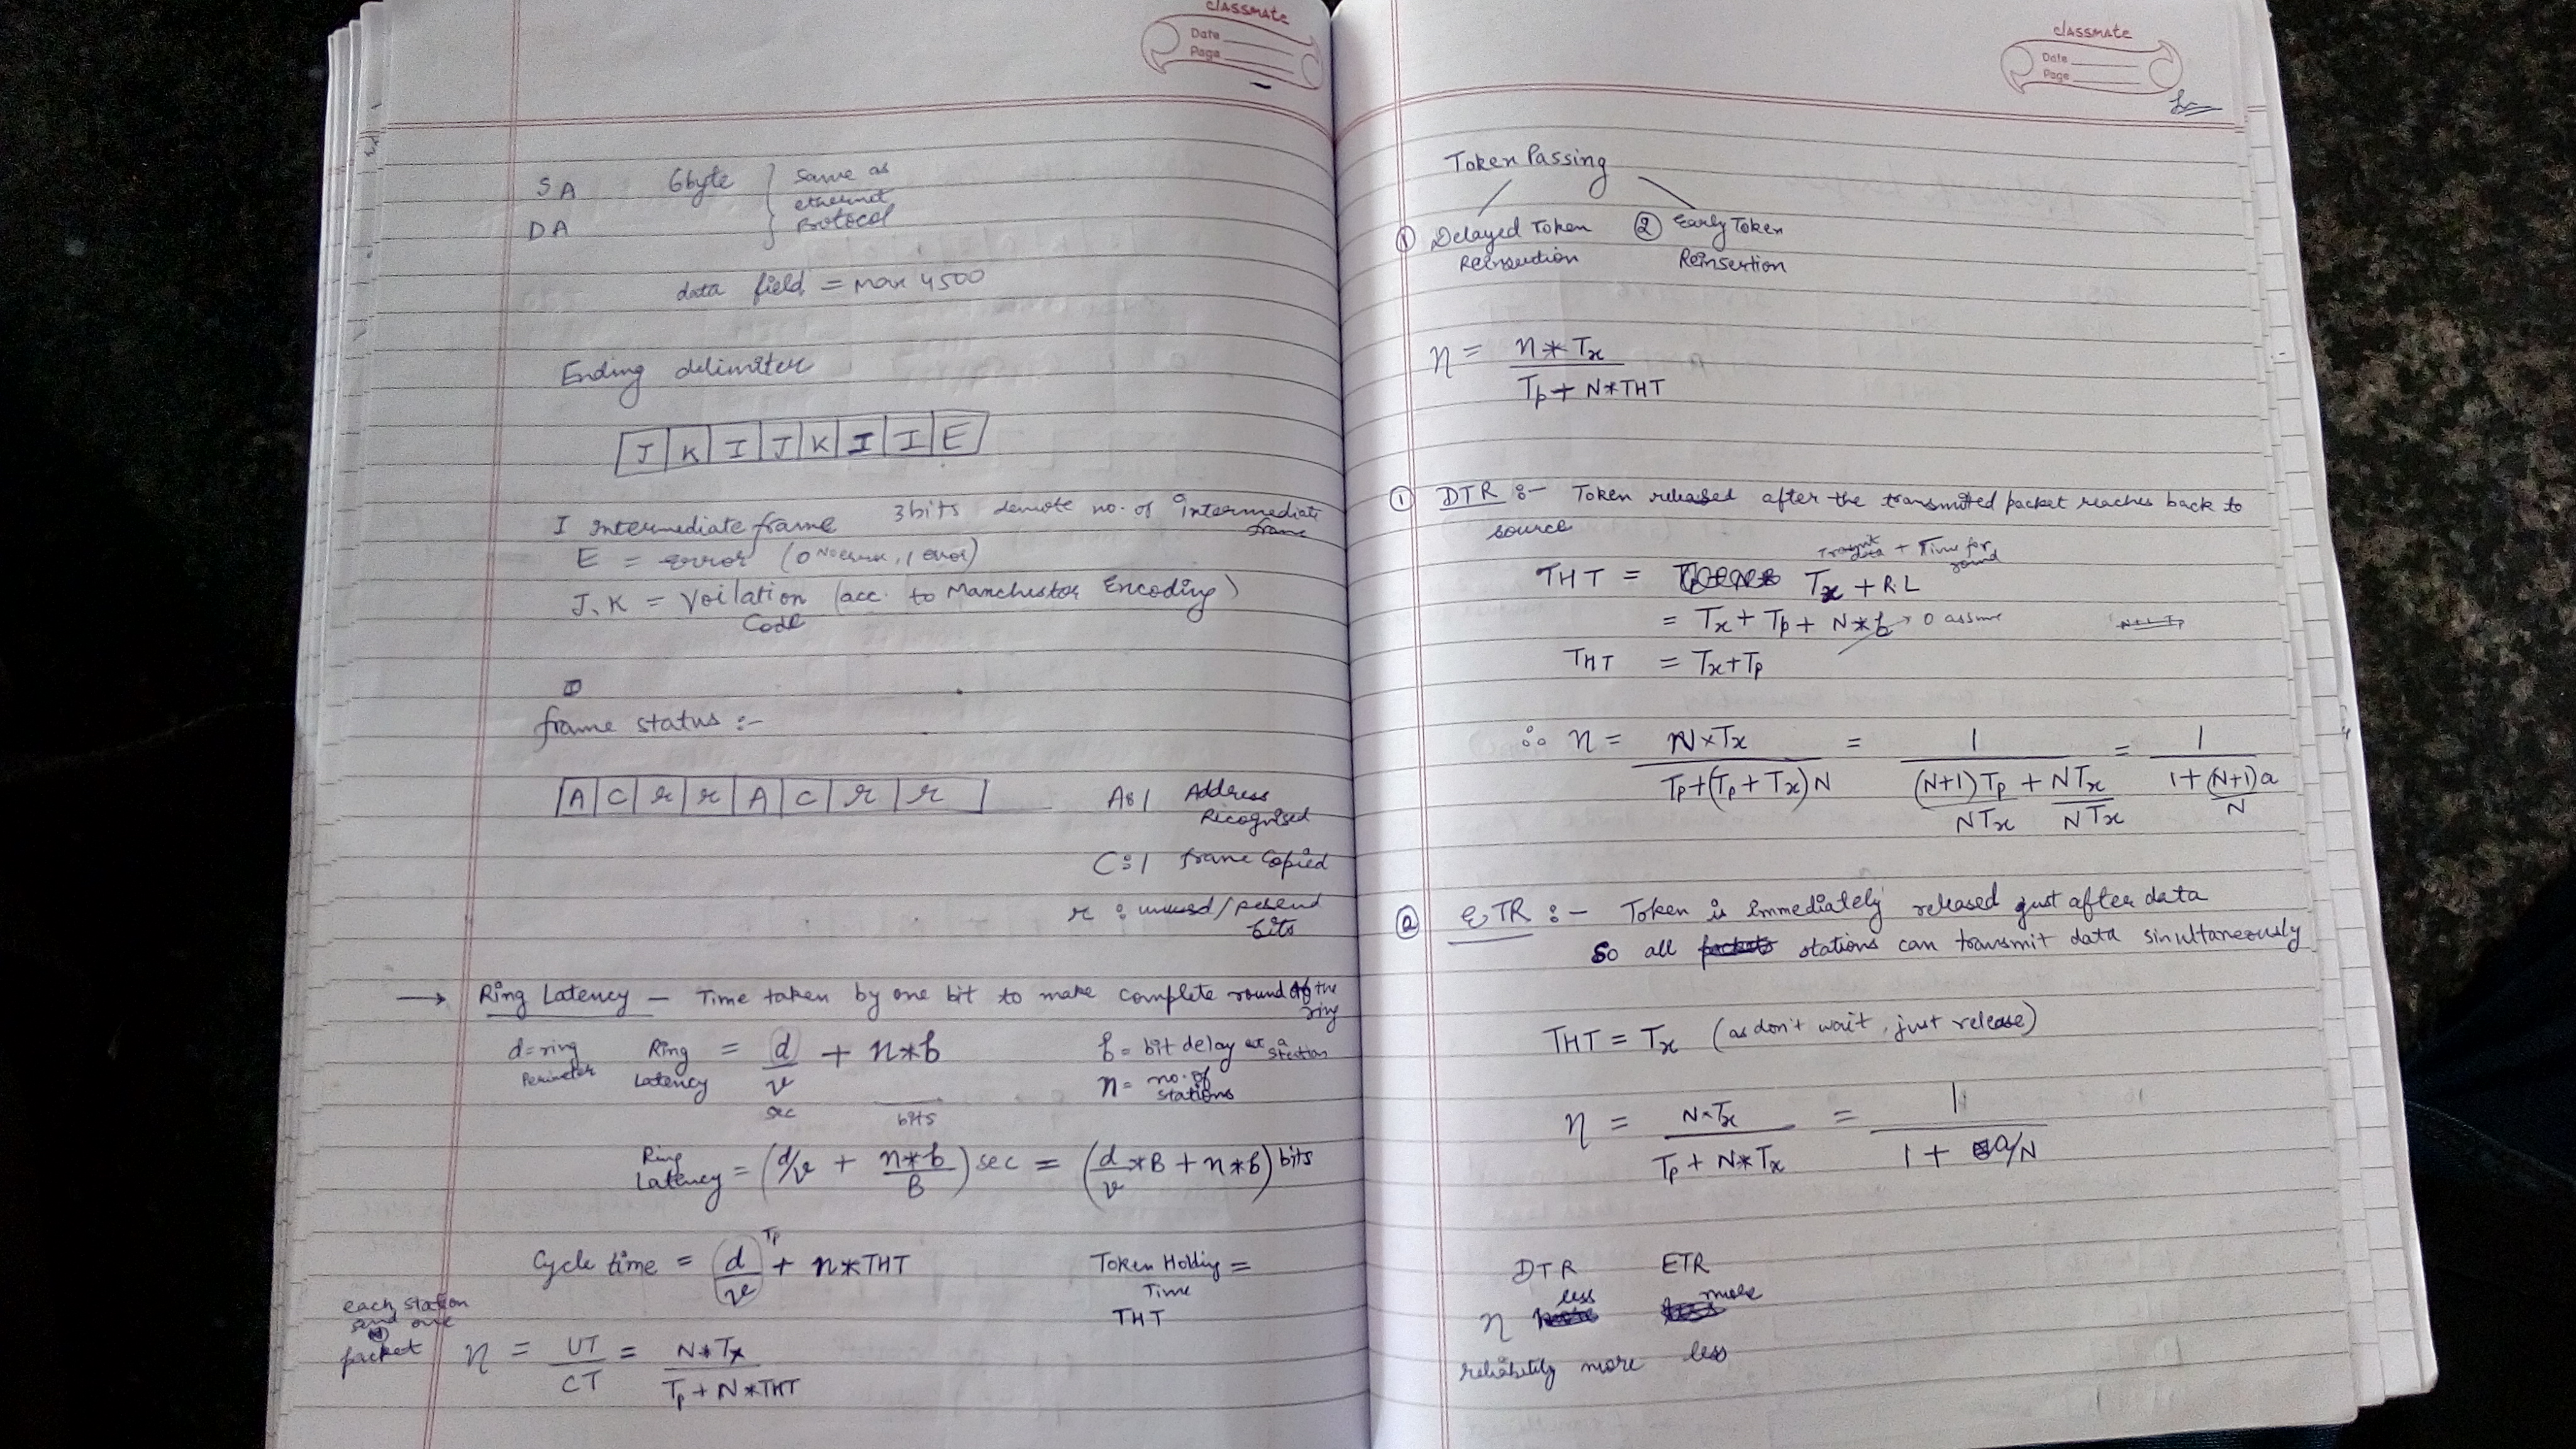 classmate
Date
Page
SA 6byte same as
ethernet
DA Protocol
data field = max 4500
Ending delimiter
J K I J K I I E
I Intermediate frame 3bits denote no. of intermediate
frame
E = error (0 No error, 1 error)
J, K = Voilation (acc. to Manchestor Encoding)
Code
frame status :-
A C r r A C r r
A:1 Address
Recognised
C:1 frame copied
r : unused/
bits
→ Ring Latency - Time taken by one bit to make complete round of the
ring
d = ring
Perimeter
Ring Latency = d/v + n*b
sec bits
b = bit delay at a
station
n = no. of
stations
Ring Latency = (d/v + n*b/B) sec = (d/v *B + n*b) bits
Cycle time = d/v Tp + n*THT
Token Holding =
Time
THT
each station
send one
packet
η = UT/CT = N*Tx / Tp + N*THT
classmate
Date
Page
Token Passing
① Delayed Token ② Early Token
Reinsertion Reinsertion
η = n*Tx / Tp + N*THT
① DTR :- Token released after the transmitted packet reaches back to
source
Transmit data + Time for
round
THT = Tx + RL
= Tx + Tp + N*b → 0 assume
THT = Tx+Tp
∴ η = N×Tx / Tp+(Tp+Tx)N = 1 / (N+1)Tp/NTx + NTx/NTx = 1 / 1+(N+1)a/N
② ETR :- Token is immediately released just after data
So all stations can transmit data sinultaneously
THT = Tx (as don't wait, just release)
η = N×Tx / Tp + N*Tx = 1 / 1 + a/N
DTR ETR
η less more
reliability more less